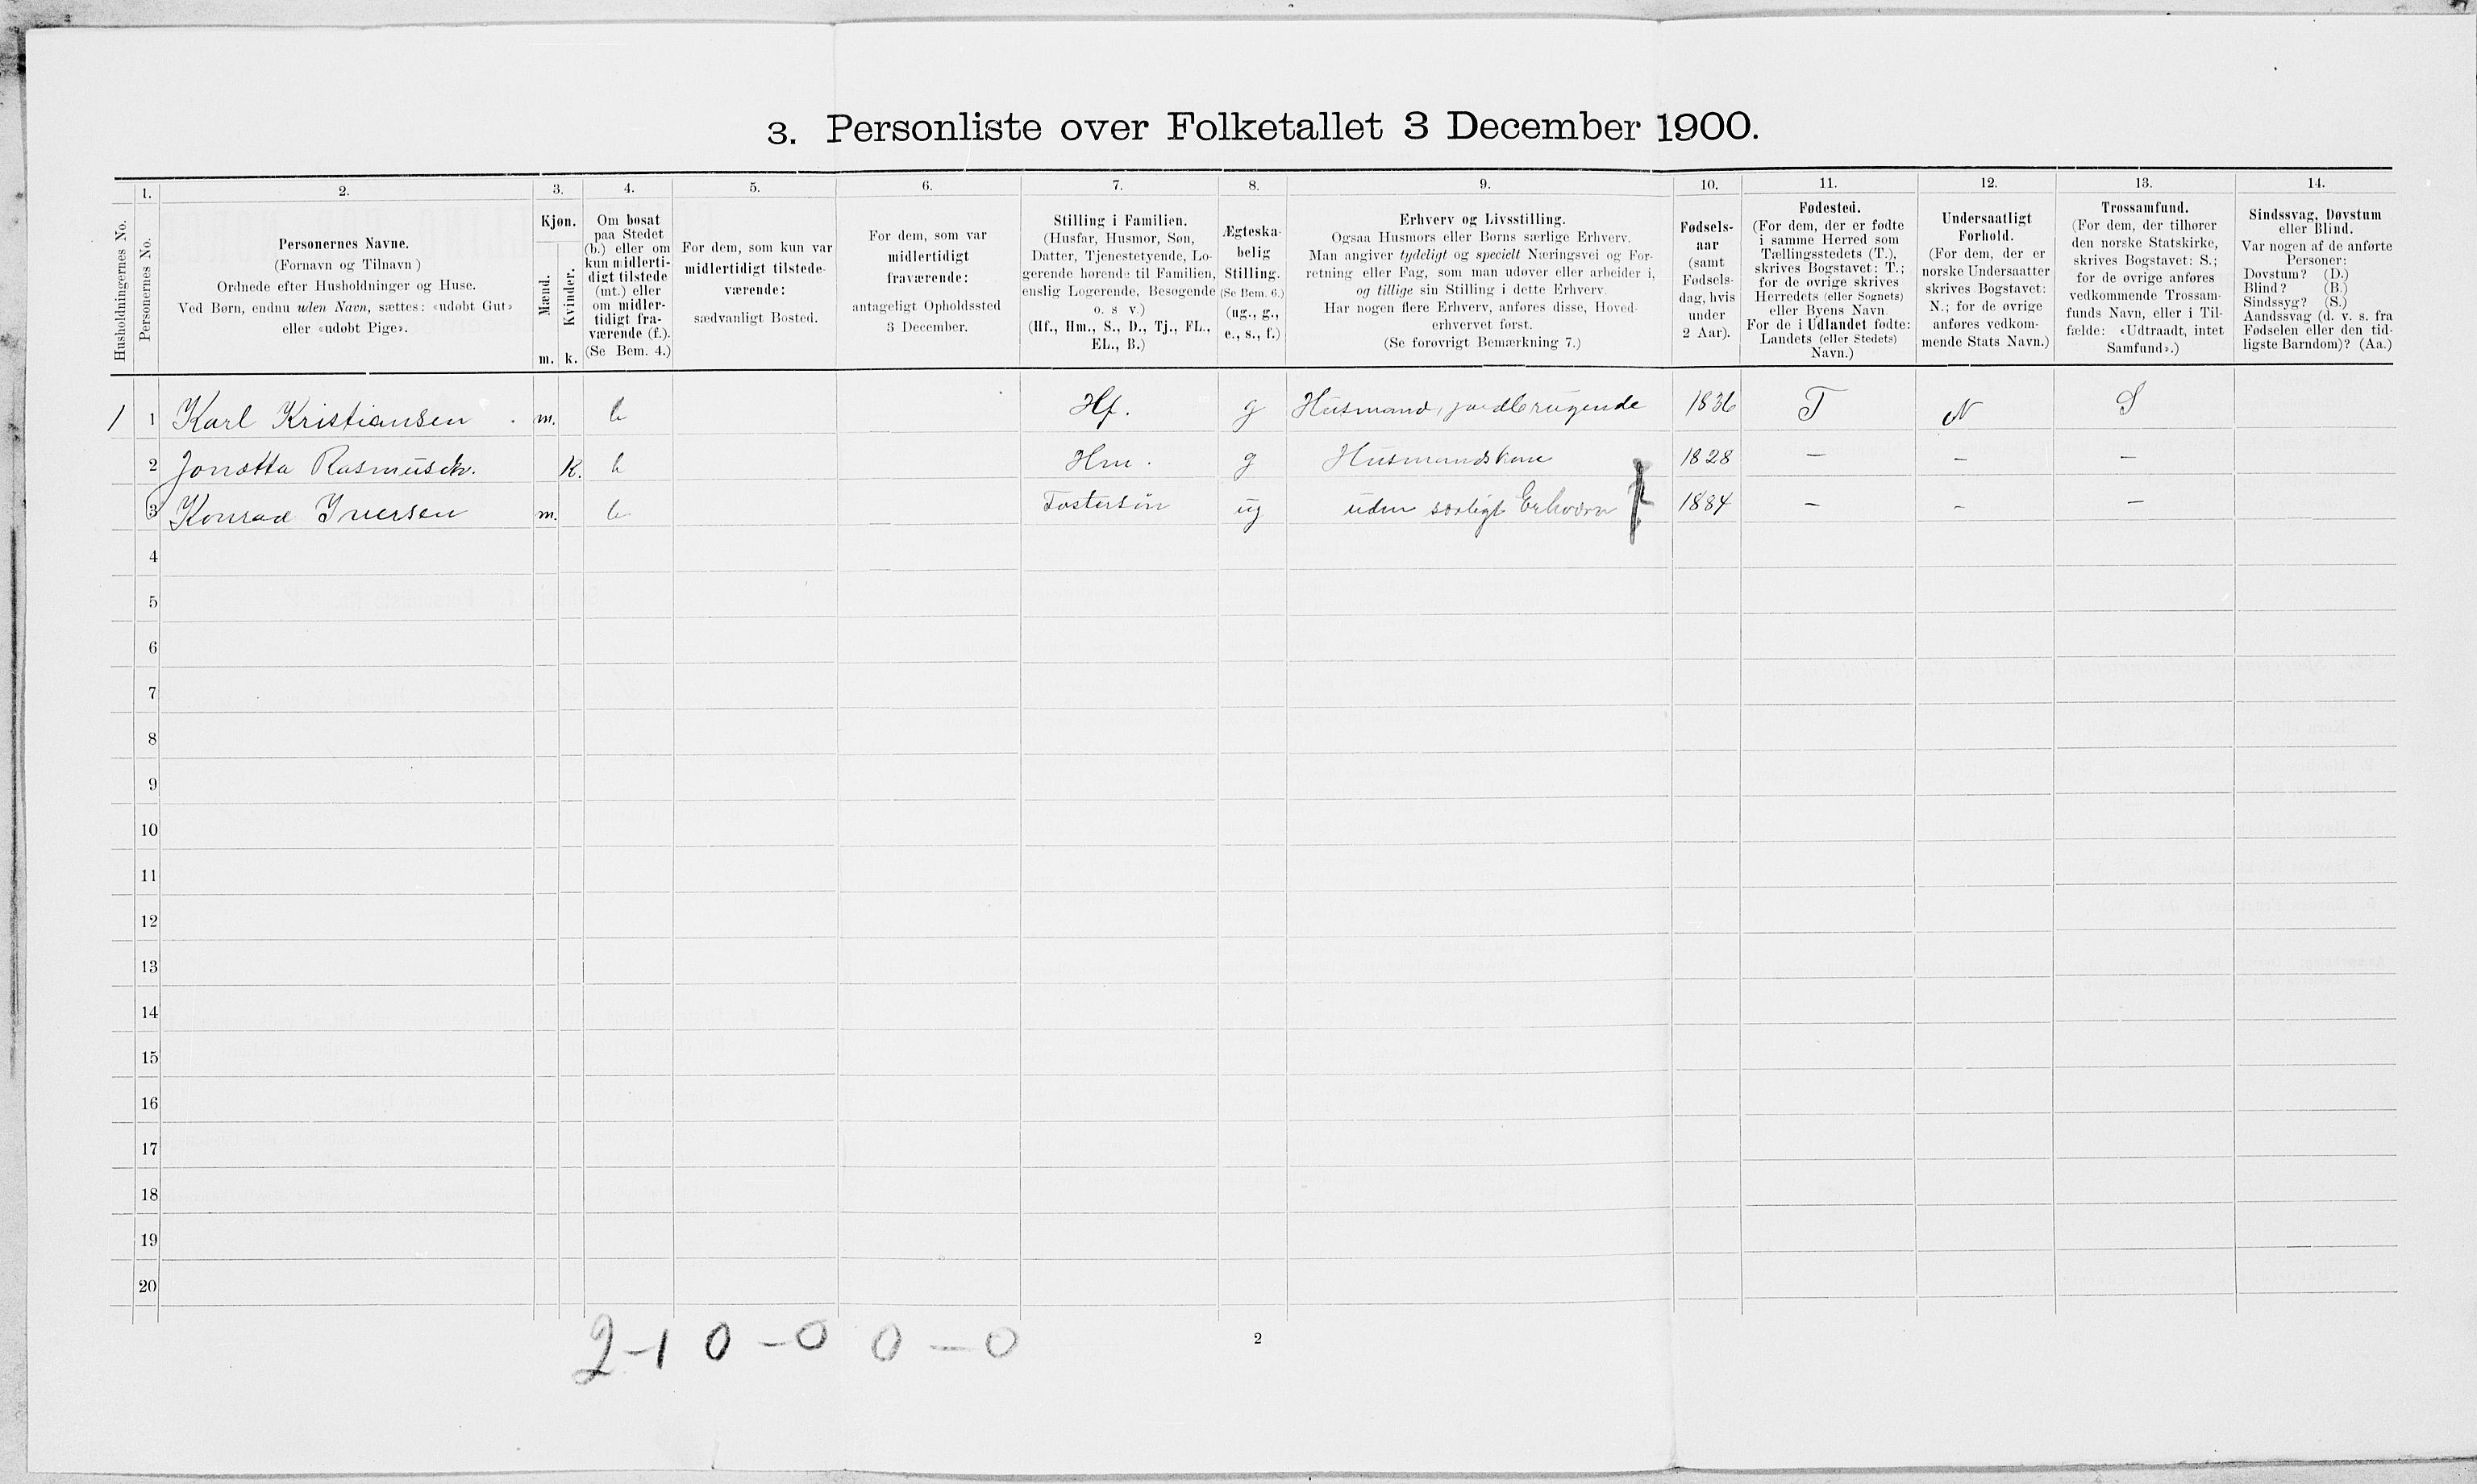 3. Personliste over Folketallet 3 December 1900.
1. 2. 3. 4. 5. 6. 7. 8. 9. 10. 11. 12. 13. 14.
Husholdningernes No.
Personernes No.
Personernes Navne.
(Fornavn og Tilnavn)
Ordnede efter Husholdninger og Huse.
Ved Børn, endnu uden Navn, sættes: «udøbt Gut»
eller «udøbt Pige».
Kjøn.
Mænd.
Kvinder.
m. k.
Om bosat
paa Stedet
(b.) eller om
kun midlerti-
digt tilstede
(mt.) eller
om midler-
tidigt fra-
værende (f.).
(Se Bem. 4.)
For dem, som kun var
midlertidigt tilstede-
værende:
sædvanligt Bosted.
For dem, som var
midlertidigt
fraværende:
antageligt Opholdssted
3 December.
Stilling i Familien.
(Husfar, Husmor, Søn,
Datter, Tjenestetyende, Lo-
gerende hørende til Familien,
enslig Logerende, Besøgende
o. s v.)
(Hf., Hm., S., D., Tj., FL.,
EL., B.)
Ægteska-
belig
Stilling.
(Se Bem. 6.)
(ug., g.,
e., s., f.)
Erhverv og Livsstilling.
Ogsaa Husmors eller Børns særlige Erhverv.
Man angiver tydeligt og specielt Næringsvei og For-
retning eller Fag, som man udøver eller arbeider i,
og tillige sin Stilling i dette Erhverv.
Har nogen flere Erhverv, anføres disse, Hoved-
erhvervet først.
(Se forøvrigt Bemærkning 7.)
Fødsels-
aar
(samt
Fødsels-
dag, hvis
under
2 Aar).
Fødested.
(For dem, der er fødte
i samme Herred som
Tællingsstedets (T.),
skrives Bogstavet: T.;
for de øvrige skrives
Herredets (eller Sognets)
eller Byens Navn.
For de i Udlandet fødte:
Landets (eller Stedets)
Navn.)
Undersaatligt
Forhold.
(For dem, der er
norske Undersaatter
skrives Bogstavet:
N.; for de øvrige
anføres vedkom-
mende Stats Navn.)
Trossamfund.
(For dem, der tilhører
den norske Statskirke,
skrives Bogstavet: S.;
for de øvrige anføres
vedkommende Trossam-
funds Navn, eller i Til-
fælde: «Udtraadt, intet
Samfund».)
Sindssvag, Døvstum
eller Blind.
Var nogen af de anførte
Personer:
Døvstum? (D.)
Blind? (B.)
Sindssyg? (S.)
Aandssvag (d. v. s. fra
Fødselen eller den tid-
ligste Barndom)? (Aa.)
1 1 Karl Kristiansen m. b Hf. g Husmand, jordbrugende 1836 T N S
2 Jonetta Rasmusdr. K. b Hm. g Husmandskone 1828 – – –
3 Konrad Iversen m. b Fostersøn ug uden særligt Erhværv 1884 – – –
4
5
6
7
8
9
10
11
12
13
14
15
16
17
18
19
20
2-1 0-0 0-0
2